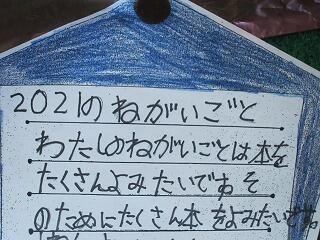 2021のねがいごと
わたしのねがいごとは本を
たくさんよみたいです そ
のためにたくさん本をよみたいです